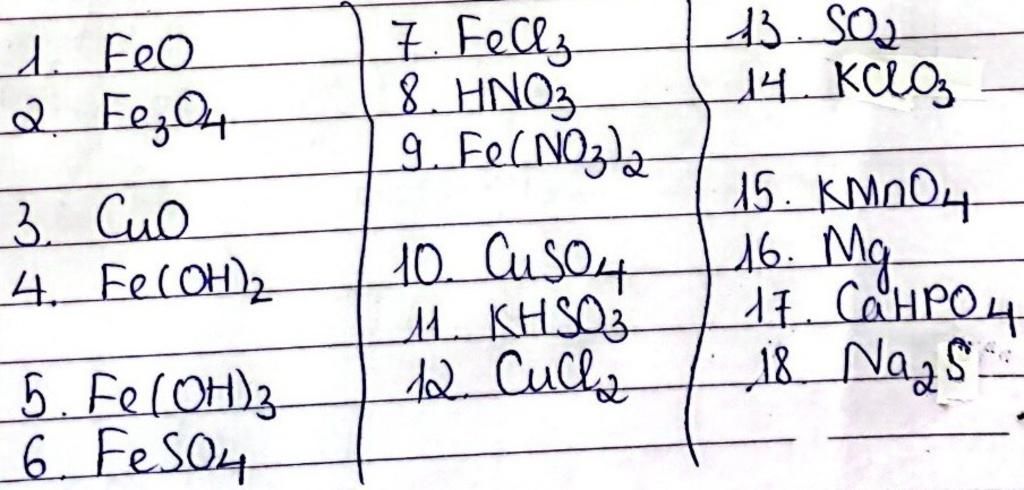 1. FeO
2. Fe₃O₄
3. CuO
4. Fe(OH)₂
5. Fe(OH)₃
6. FeSO₄
7. FeCl₃
8. HNO₃
9. Fe(NO₃)₂
10. CuSO₄
11. KHSO₃
12. CuCl₂
13. SO₂
14. KClO₃
15. KMnO₄
16. Mg
17. CaHPO₄
18. Na₂S